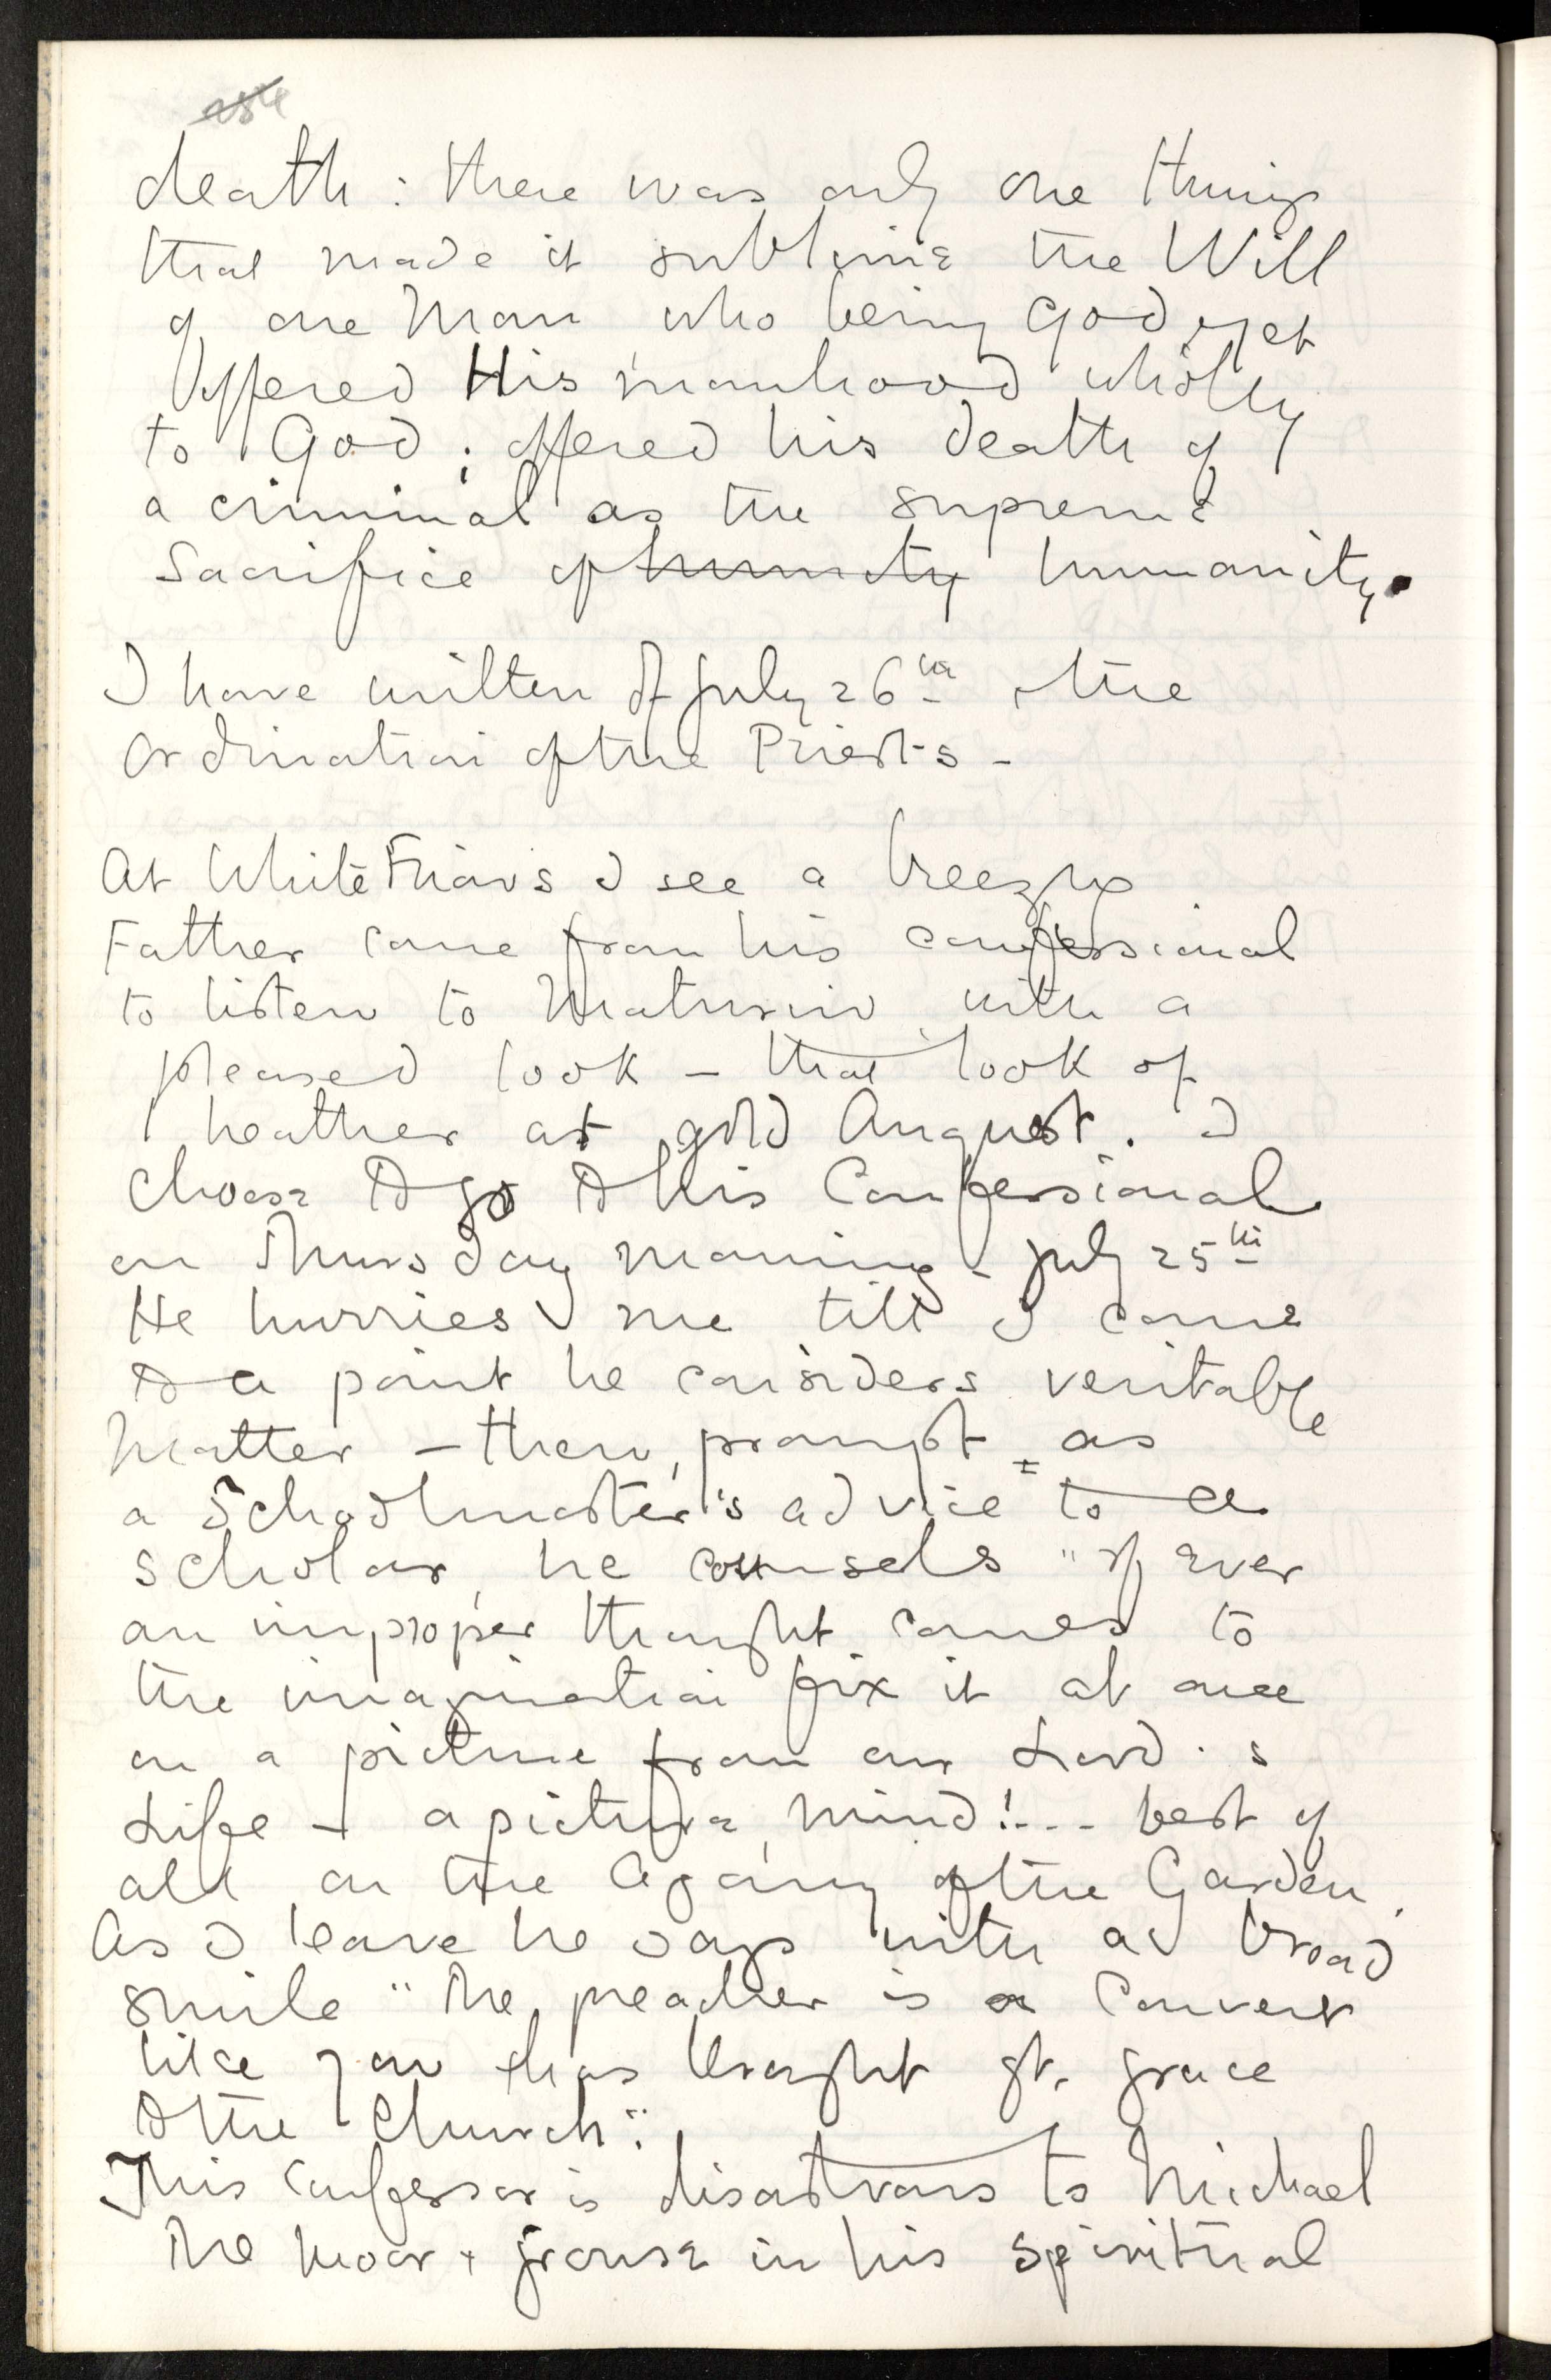 254
death : there was only one thing
that made it sublime the Will
of one Man who being God, yet
offered His manhood wholly
to God ; offered his death of
a criminal as the supreme
Sacrifice of humanity humanity.
I have written of July 26th, the
Ordination of the Priests -
At White Friars I see a breezy
Father come from his confessional
to listen to Maturin with a
pleased look - that look of
heather at gold August. I
choose to go to this Confessional
on Thursday morning - July 25th
He hurries me till I come
to a point he considers veritable
matter - then, prompt as
a Schoolmaster's advice to a
scholar, he counsels "If ever
an improper thought comes to
the imagination fix it at once
on a picture from our Lord's
Life - a picture, mind!... best of
all on the Agony of the Garden.
As I leave he says with a broad
smile "The preacher is a Convert
like you & has brought gt. grace
to the Church".
This Confessor is disastrous to Michael
The moor & grouse in his spiritual